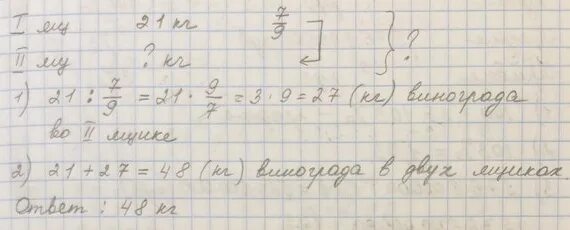 I ящ 21 кг 7/9
II ящ ? кг } ?
1) 21 : 7/9 = 21 · 9/7 = 3 · 9 = 27 (кг) винограда
во II ящике
2) 21 + 27 = 48 (кг) винограда в двух ящиках.
Ответ : 48 кг